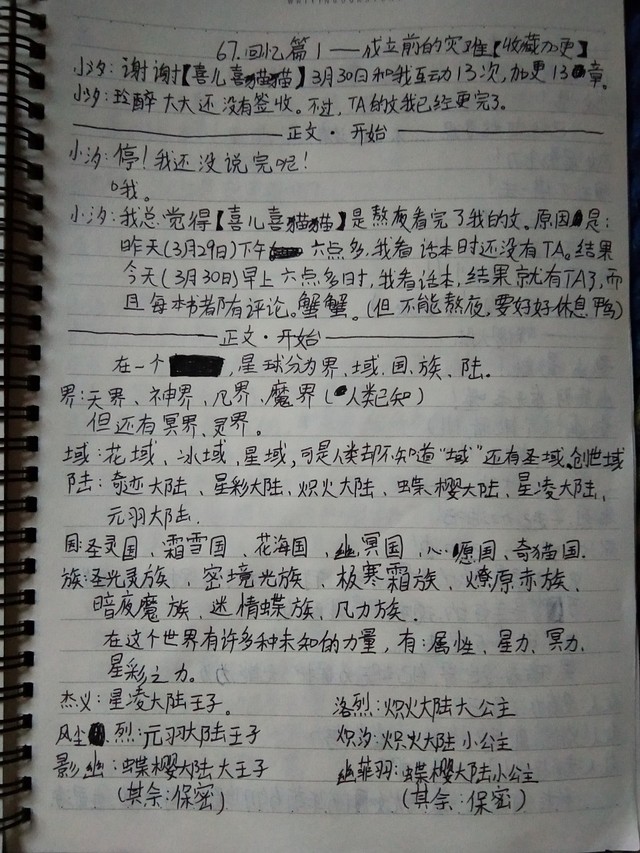 67.回忆篇1——成立前的灾难【收藏加更】
小汐:谢谢【喜儿喜猫猫】3月30日和我互动13次,加更13章。
小汐:玲醉大大还没有签收。不过,TA的文我已经更完了。
正文·开始
小汐:停!我还没说完呢!
哦。
小汐:我总觉得【喜儿喜猫猫】是熬夜看完了我的文。原因是:
昨天(3月29日)下午六点多,我看话本时还没有TA。结果
今天(3月30日)早上六点多时,我看话本,结果就有TA了,而
且每本书都有评论。蟹蟹。(但不能熬夜,要好好休息鸭)
正文·开始
在一个,星球分为界、域、国、族、陆。
界:天界、神界、凡界、魔界(人类已知)
但还有冥界、灵界。
域:花域、冰域、星域,可是人类却不知道"域"还有圣域、创世域
陆:奇迹大陆、星彩大陆、炽火大陆、蝶樱大陆、星凌大陆、
元羽大陆.
国:圣灵国、霜雪国、花海国、幽冥国、心愿国、奇猫国.
族:圣光灵族、密境光族、极寒霜族、燎原赤族、
暗夜魔族、迷情蝶族、凡力族.
在这个世界有许多种未知的力量,有:属性、星力、冥力、
星彩之力。
杰义:星凌大陆王子。 洛烈:炽火大陆大公主
风尘.烈:元羽大陆王子 炽汐:炽火大陆小公主
影幽:蝶樱大陆大王子 幽菲羽:蝶樱大陆小公主
(其余:保密) (其余:保密)